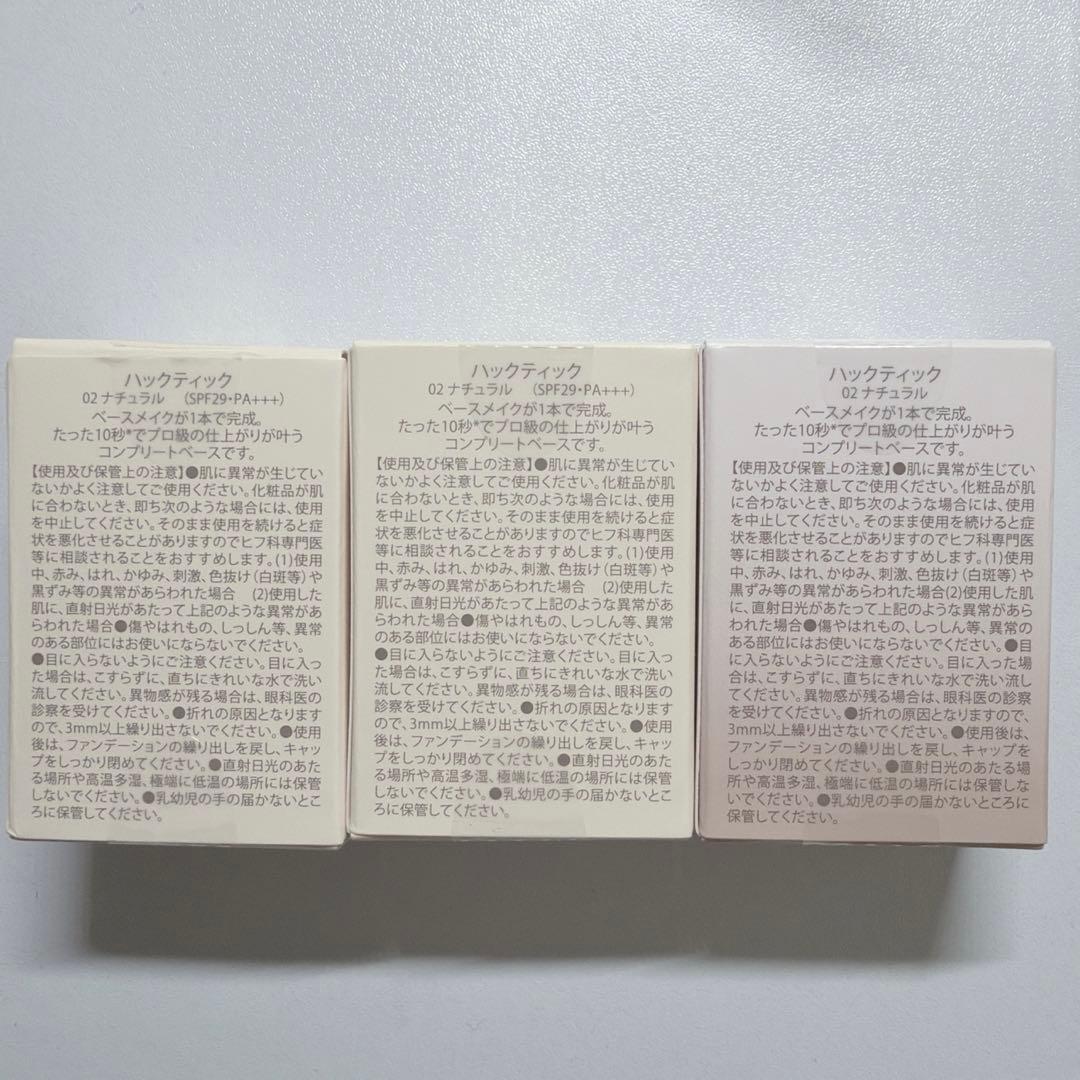 ハックティック
02 ナチュラル　（SPF29・PA+++）
ベースメイクが1本で完成。
たった10秒*でプロ級の仕上がりが叶う
コンプリートベースです。
【使用及び保管上の注意】●肌に異常が生じてい
ないかよく注意してご使用ください。化粧品が肌
に合わないとき、即ち次のような場合には、使用
を中止してください。そのまま使用を続けると症
状を悪化させることがありますのでヒフ科専門医
等に相談されることをおすすめします。(1)使用
中、赤み、はれ、かゆみ、刺激、色抜け（白斑等）や
黒ずみ等の異常があらわれた場合　(2)使用した
肌に、直射日光があたって上記のような異常があ
らわれた場合●傷やはれもの、しっしん等、異常
のある部位にはお使いにならないでください。
●目に入らないようにご注意ください。目に入っ
た場合は、こすらずに、直ちにきれいな水で洗い
流してください。異物感が残る場合は、眼科医の
診察を受けてください。●折れの原因となります
ので、3mm以上繰り出さないでください。●使用
後は、ファンデーションの繰り出しを戻し、キャッ
プをしっかり閉めてください。●直射日光のあた
る場所や高温多湿、極端に低温の場所には保管
しないでください。●乳幼児の手の届かないとこ
ろに保管してください。
ハックティック
02 ナチュラル　（SPF29・PA+++）
ベースメイクが1本で完成。
たった10秒*でプロ級の仕上がりが叶う
コンプリートベースです。
【使用及び保管上の注意】●肌に異常が生じてい
ないかよく注意してご使用ください。化粧品が肌
に合わないとき、即ち次のような場合には、使用
を中止してください。そのまま使用を続けると症
状を悪化させることがありますのでヒフ科専門医
等に相談されることをおすすめします。(1)使用
中、赤み、はれ、かゆみ、刺激、色抜け（白斑等）や
黒ずみ等の異常があらわれた場合　(2)使用した
肌に、直射日光があたって上記のような異常があ
らわれた場合●傷やはれもの、しっしん等、異常
のある部位にはお使いにならないでください。
●目に入らないようにご注意ください。目に入っ
た場合は、こすらずに、直ちにきれいな水で洗い
流してください。異物感が残る場合は、眼科医の
診察を受けてください。●折れの原因となります
ので、3mm以上繰り出さないでください。●使用
後は、ファンデーションの繰り出しを戻し、キャッ
プをしっかり閉めてください。●直射日光のあた
る場所や高温多湿、極端に低温の場所には保管
しないでください。●乳幼児の手の届かないとこ
ろに保管してください。
ハックティック
02 ナチュラル
ベースメイクが1本で完成。
たった10秒*でプロ級の仕上がりが叶う
コンプリートベースです。
【使用及び保管上の注意】●肌に異常が生じてい
ないかよく注意してご使用ください。化粧品が肌
に合わないとき、即ち次のような場合には、使用
を中止してください。そのまま使用を続けると症
状を悪化させることがありますのでヒフ科専門医
等に相談されることをおすすめします。(1)使用
中、赤み、はれ、かゆみ、刺激、色抜け（白斑等）や
黒ずみ等の異常があらわれた場合(2)使用した肌
に、直射日光があたって上記のような異常があら
われた場合●傷やはれもの、しっしん等、異常
のある部位にはお使いにならないでください。●目
に入らないようにご注意ください。目に入った場
合は、こすらずに、直ちにきれいな水で洗い流し
てください。異物感が残る場合は、眼科医の診察
を受けてください。●折れの原因となりますので、
3mm以上繰り出さないでください。●使用後は、
ファンデーションの繰り出しを戻し、キャップを
しっかり閉めてください。●直射日光のあたる場
所や高温多湿、極端に低温の場所には保管しな
いでください。●乳幼児の手の届かないところに
保管してください。